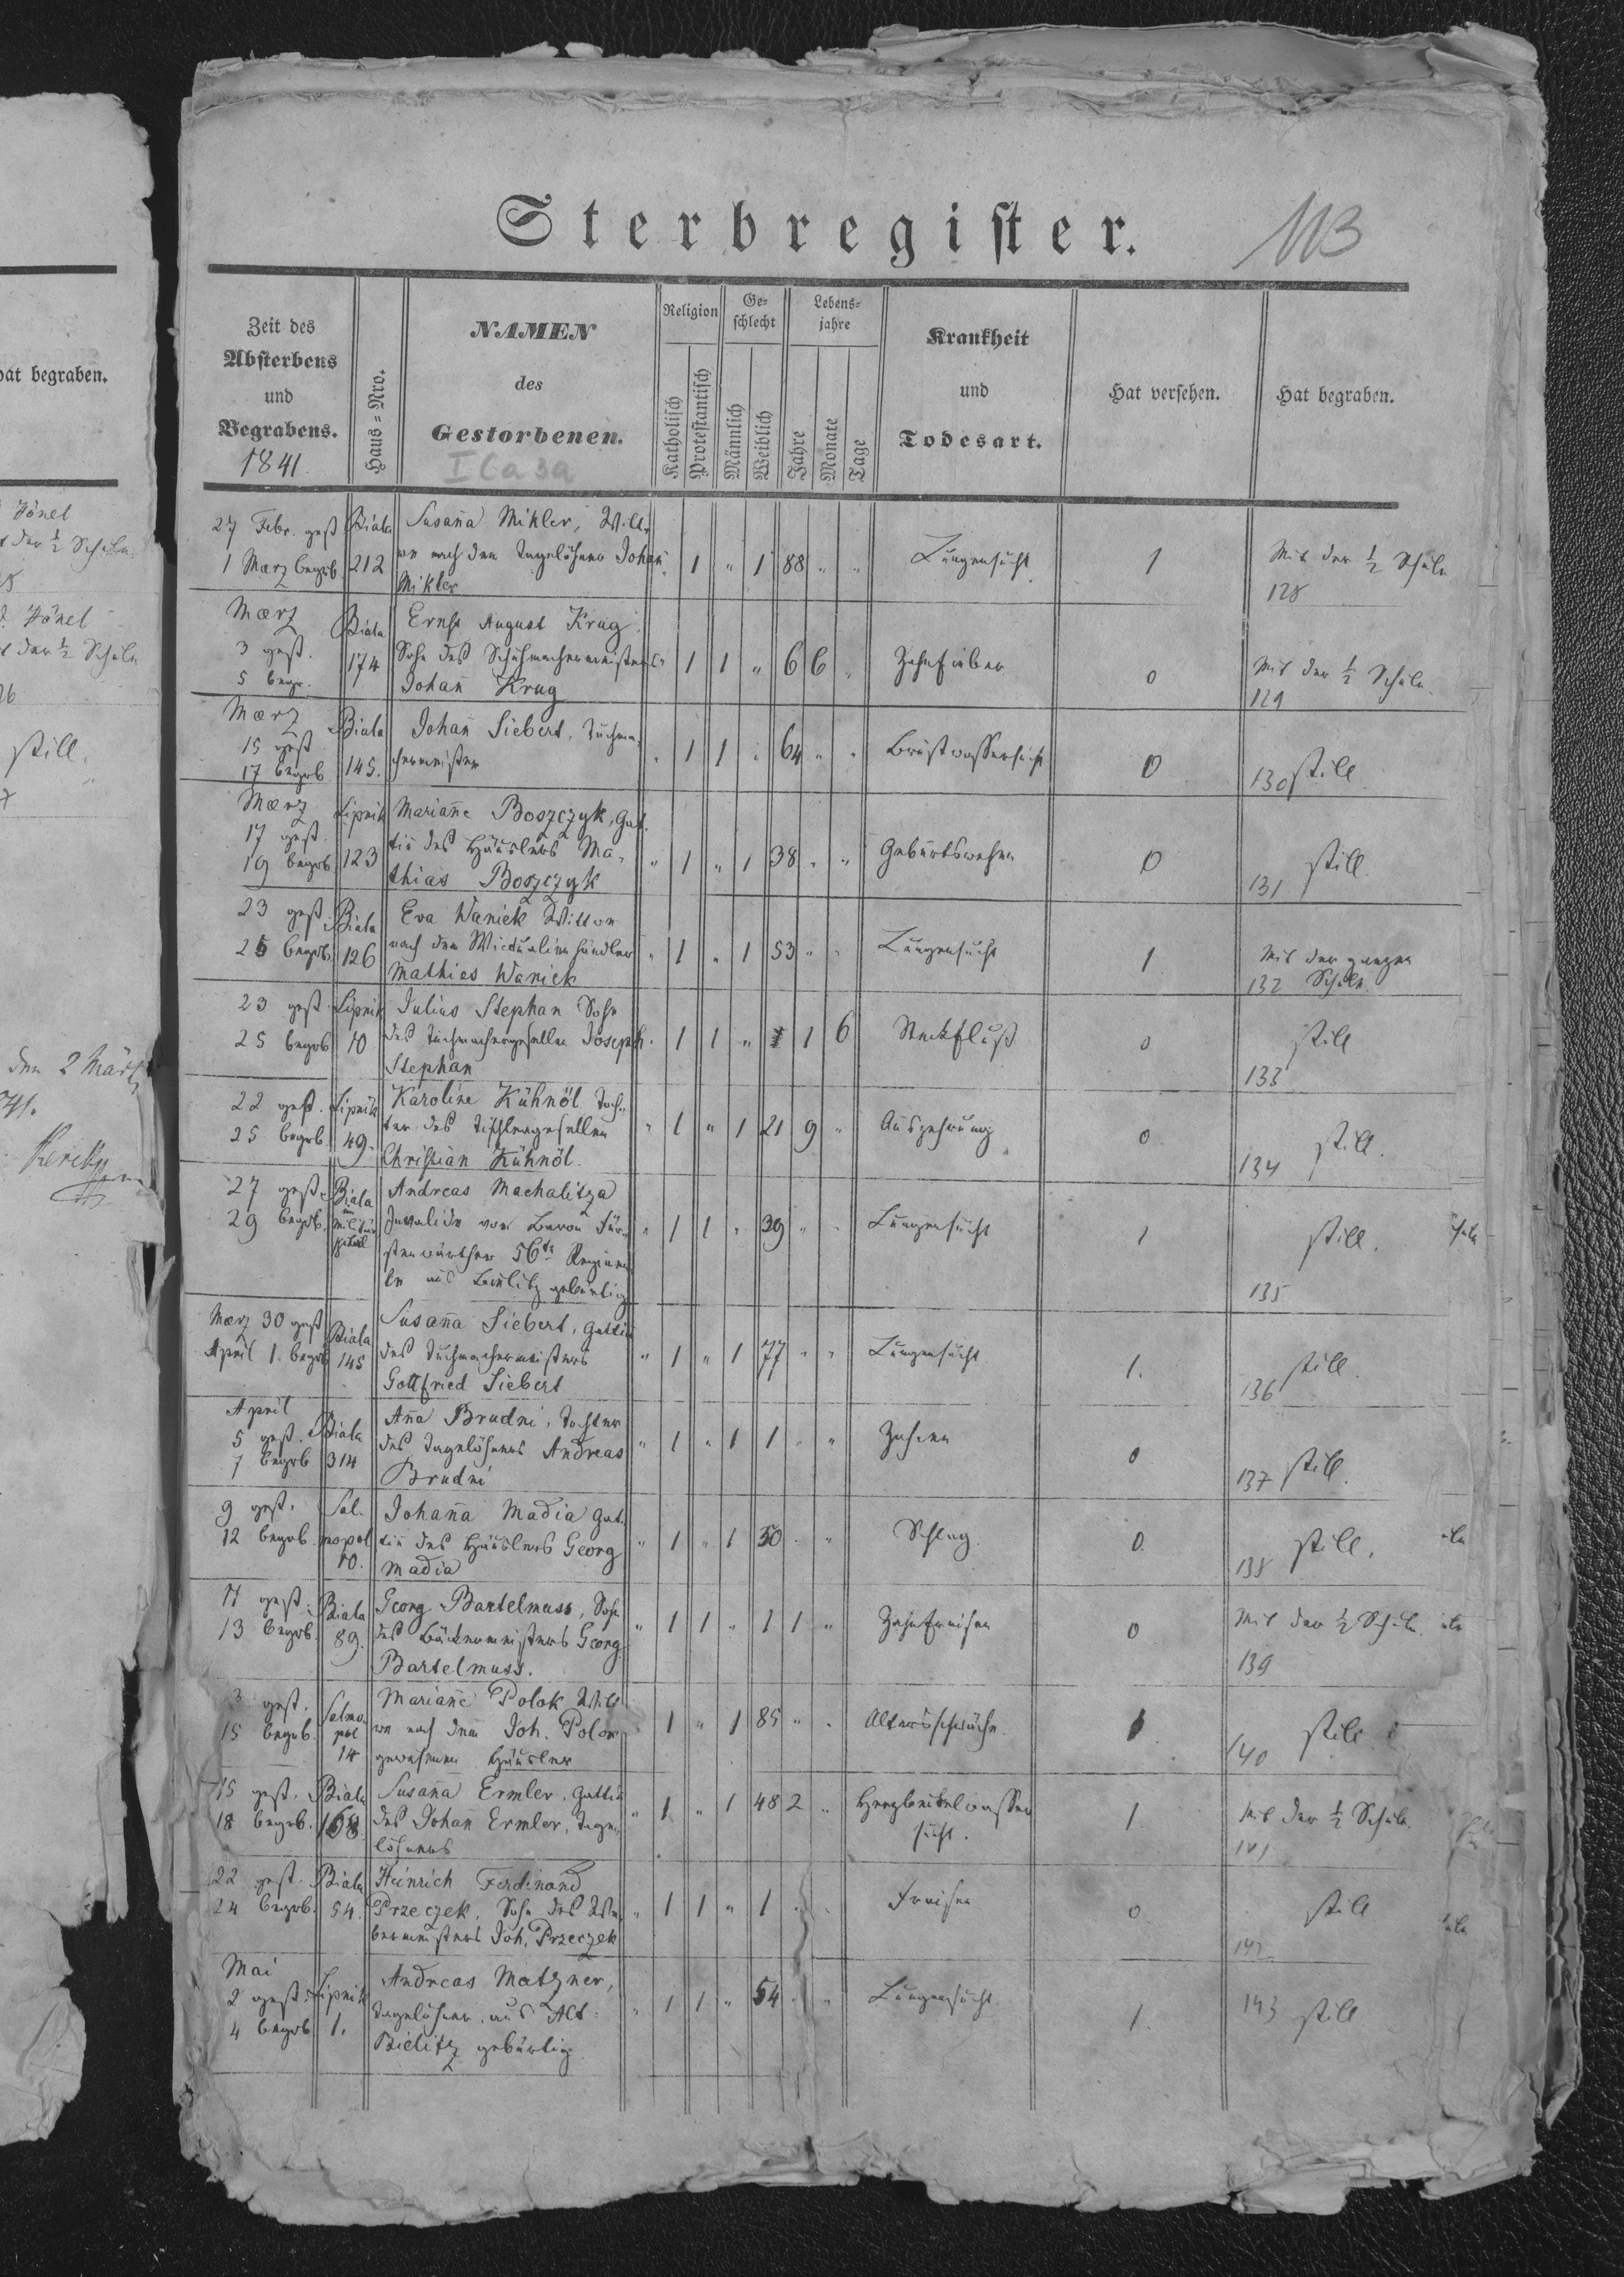 at begraben.
Hönel
der ½ Schule
Hönel
der ½ Schule
still.
den 2 März
41.
Sterbregister.
113
Zeit des
Absterbens
und
Begrabens.
1841.
Haus-Nro.
NAMEN
des
Gestorbenen.
Religion
Katholisch
Protestantisch
Ge-
schlecht
Männlich
Weiblich
Lebens-
jahre
Jahre
Monate
Tage
Krankheit
und
Todesart.
Hat versehen.
Hat begraben.
27 Febr. gest. Biala Susana Mikler, Witt-
1 Maerz begrb. 212 we nach dem Tagelöhner Johañ " 1 " 1 88 " " Lungensucht 1 Mit der ½ Schule
Mikler 128
Maerz Biala Ernst August Krug
3 gest. 174 Sohn des Schuhmachermeisters " 1 1 " 6 6 " Zahnfieber 0 Mit der ½ Schule
5 begr. Johañ Krug 129
Maerz Biala Johañ Siebert, Tuchma-
15 gest. 145. chermeister " 1 1 " 64 " " Brustwassersucht 0 130 still
17 begrb
Maerz Lipnik Mariañe Boszczyk, Gat-
17 gest. 123 tin des Häuslers Ma- " 1 " 1 38 " " Geburtswehen 0 still
19 begrb. thias Boszczyk 131
23 gest. Biala Eva Waniek Wittwe
25 begrb. 126 nach dem Victualienhändler " 1 " 1 53 " " Lungensucht 1 Mit der ganzen
Mathias Waniek 132 Schule
23 gest. Lipnik Julius Stephan Sohn
25 begrb 10 des Tuchmachergesellen Joseph " 1 1 " 1 6 Steckfluß 0 still
Stephan 133
22 gest. Lipnik Karoline Kühnöl Toch-
25 begrb. 49. ter des Tischlergesellen " 1 " 1 21 9 " Auszehrung 0 still.
Christian Kühnöl. 134
27 gest. Biala Andreas Machalitza
29 begrb. im Militär Invalide von Baron Für- " 1 1 " 39 " " Lungensucht 1 still.
stenwärther 56te Regimen
te aus gebürtig 135
Maerz 30 gest Biala Susaña Siebert, Gattin
April 1. begrb 145 des Tuchmachermeisters " 1 " 1 77 " " Lungensucht 1. still.
Gottfried Siebert 136
April Biala Aña Brudni, Tochter
5 gest. 314 des Tagelöhners Andreas " 1 " 1 1 " " Zahnen 0 still.
7 begrb Brudni 137
9 gest. Sal- Johaña Madia Gat-
12 begrb. mopol tin des Häuslers Georg " 1 " 1 50 " " Schlag 0. still.
10. Madia 138
11 gest. Biala Georg Bartelmuss, Sohn
13 begrb. 89. des Bäckermeisters Georg " 1 1 " 1 1 " Zahnfraisen 0 Mit der ½ Schule
Bartelmuss. 139
3 gest. Salmo- Mariañe Polok Witt-
15 begrb. pol we nach dem Joh. Polok " 1 " 1 85 " " Altersschwäche 1. still
14 gewesenen Häusler 140
15 gest. Biala Susaña Ermler, Gattin
18 begrb. 168 des Johañ Ermler, Tage- " 1 " 1 48 2 " Herzbeutelwasser 1. Mit der ½ Schule.
löhners sucht. 141
22 gest. Biala Heinrich Ferdinand
24 begrb. 54. Przeczek, Sohn des We- " 1 1 " 1 " " Fraisen 0 still
bermeisters Joh. Przeczek 142
Mai Lipnik Andreas Matzner,
2 gest. 1. Tagelöhner, aus Alt- " 1 1 " 54 " " Lungensucht 1. 143 still
4 begrb Bielitz gebürtig